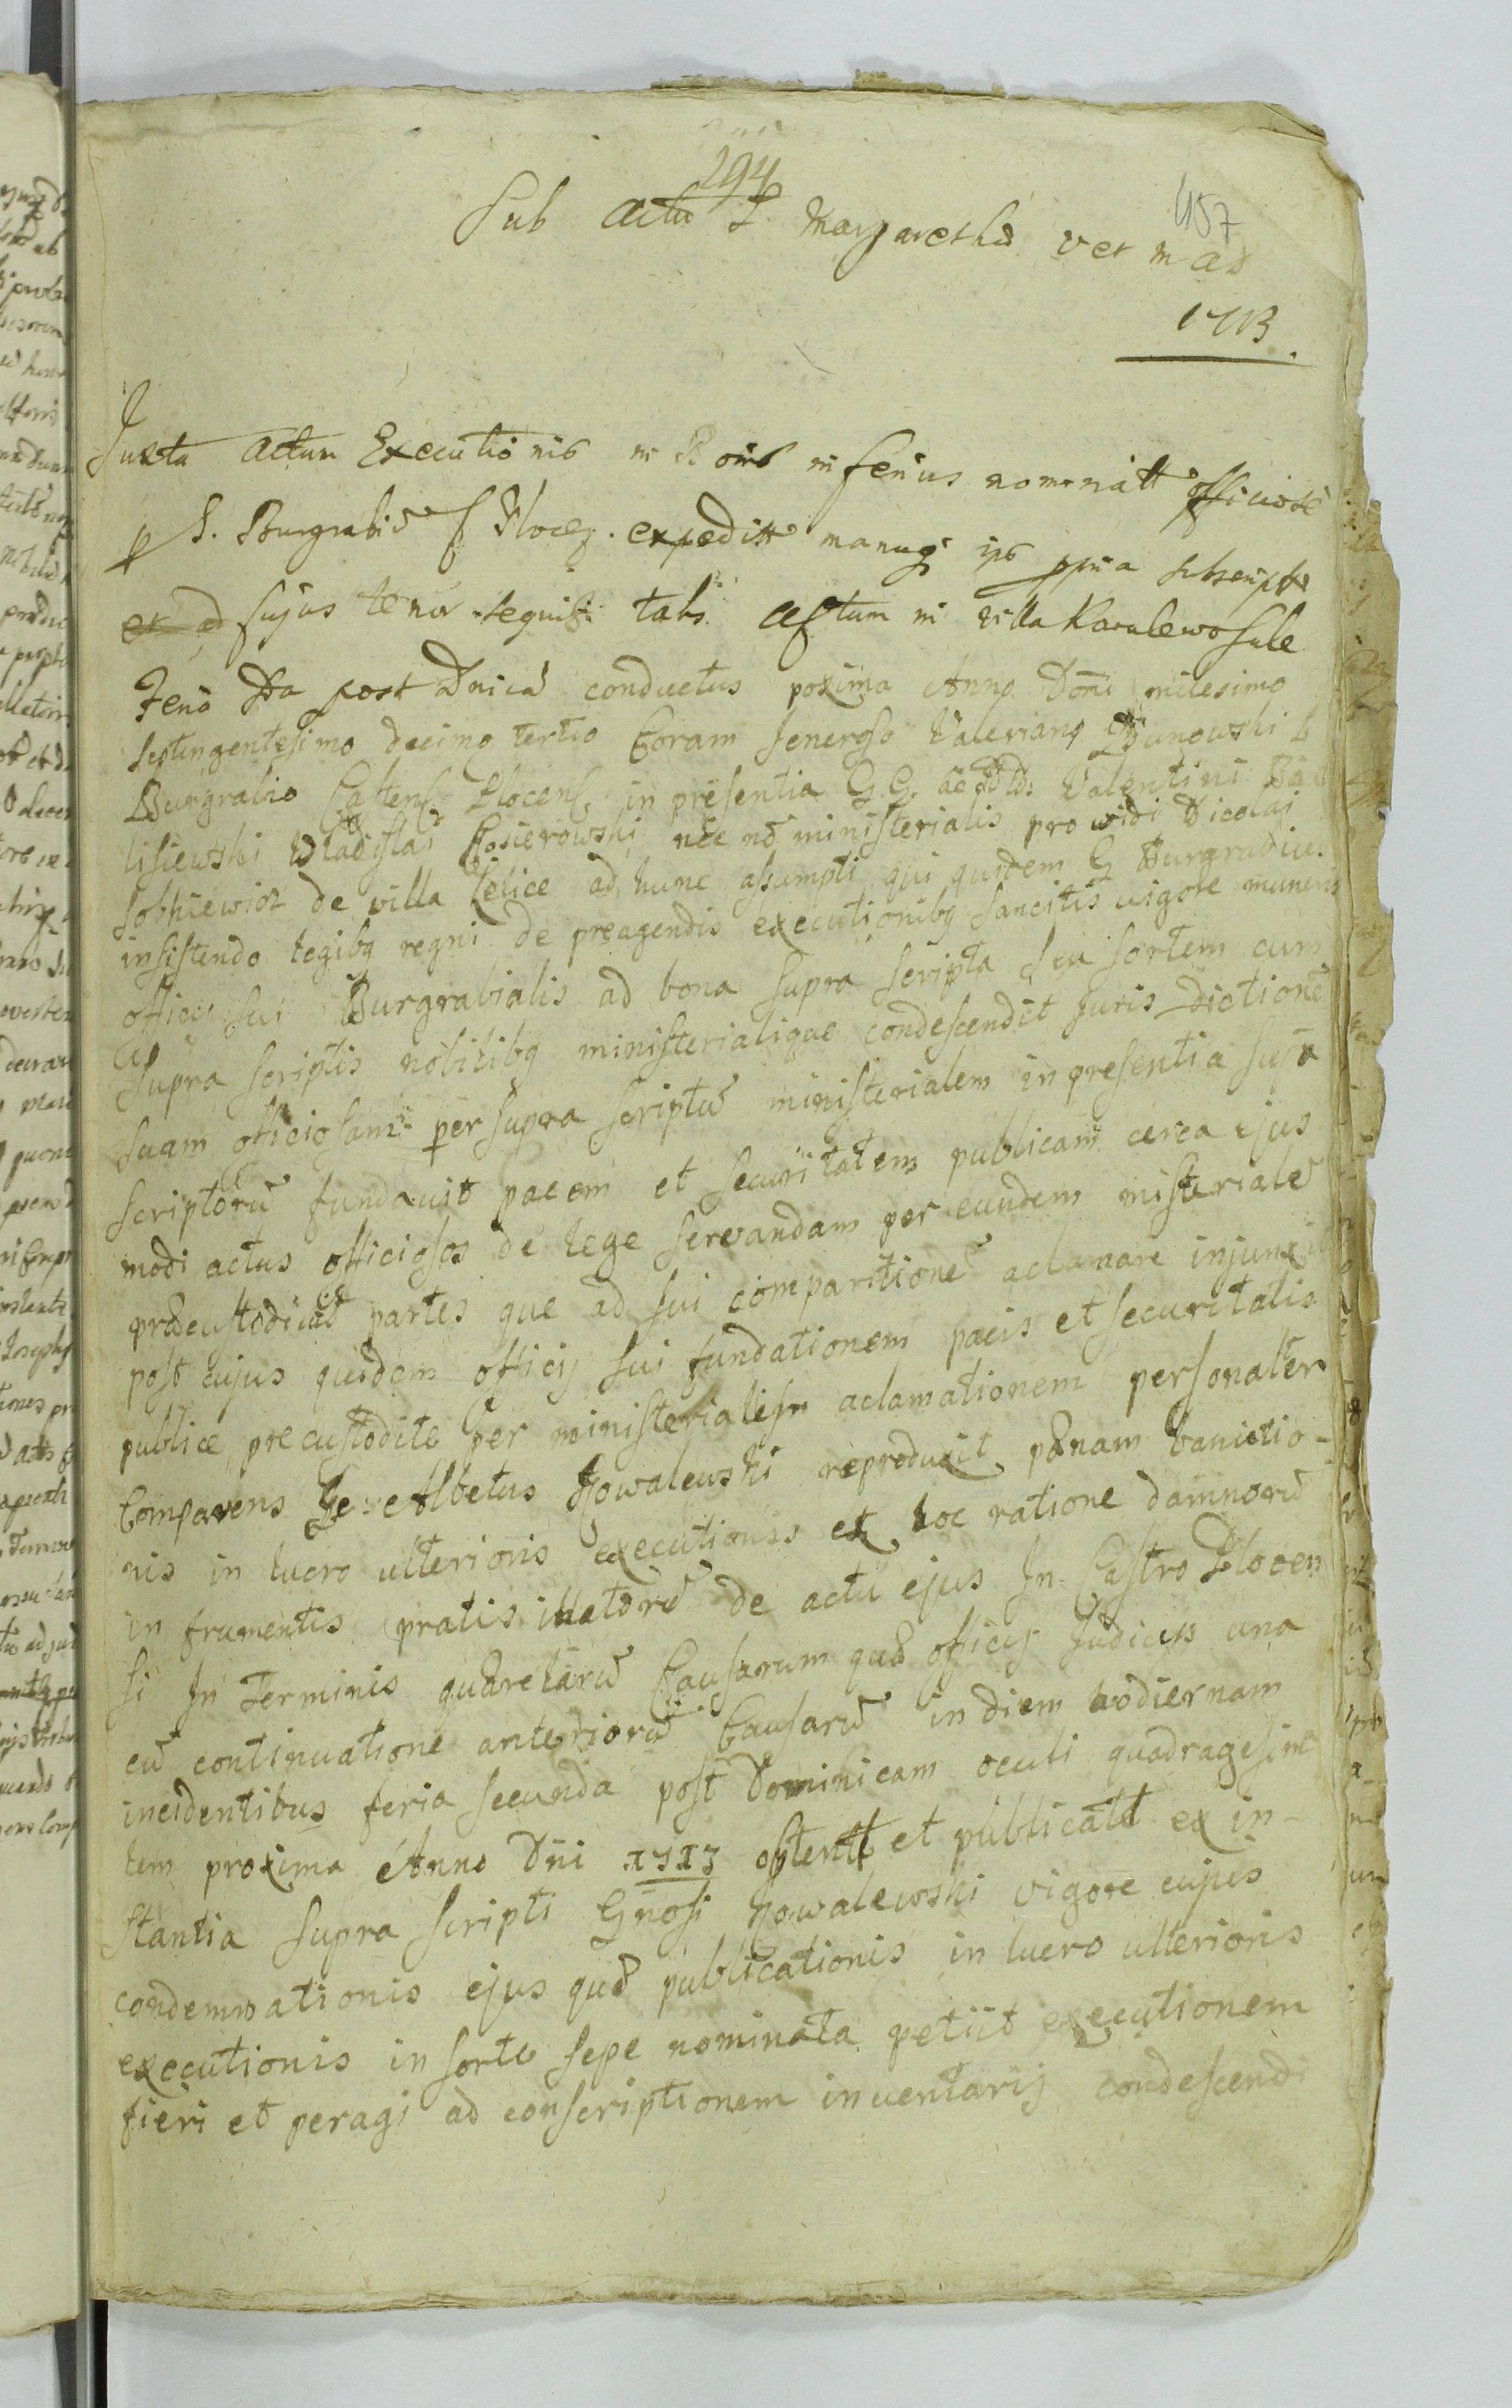 294
457
Sub Actu S. Margarethæ ver m æs
1713.
Juxta Actum Executionis in Bonis inferius nominatt officiose
p G. Burgrabiū C Plocen. expeditt manuq ips ppria subscript
et ad hujus tenor sequitr talis. Actum in villa Kowalewo Sule
Feria 2da post Dnicā conductus poxima Anno Doni milesimo
septingentesimo decimo tertio Coram Generoso Valeriano Dunowski b
Burgrabio Castens. Plocens. in presentia G.G. ac Valentini
lisiewski Wladislai Kosierowski nec nō ministerialis prowidi Nicolai
sobkiewicz de villa Celice ad hunc assumpti qui quidem G Burgradius
insistendo legibq regni de preagendis executionibq sancitis vigore muneris
officij sui Burgrabialis ad bona supra scripta seu sortem cum
Supra scriptis nobilibq ministerialique condescendit Juris dictionē
suam officiosam per supra scriptū ministerialem in presentia supra
scriptorū fundavit pacem et securitatem publicam circa ejus
modi actus officiosos de lege servandam per eundem misterialē
præcustodivit partes que ad sui comparitionē aclamare injunxit
post cujus quidem officij sui fundationem pacis et securitatis
publice precustodite per ministerialem aclamationem personaliter
Comparens Ge: Albetus Kowalewski reproduxit pænam banictio-
nis in lucro ulterioris executionis ex hoc ratione damnorū
in frumentis pratis illatorū de actu ejus In Castro Plocen
si In Terminis quærelarū Causarum quæ officij Judicijs una
cū continuatione anteriorū Causarū in diem hodiernam
incidentibus feria secunda post Dominicam oculi quadragesim
lem proxima Anno Dni 1713 obtentt et publicatt ex in-
stantia supra scripti Gnosi Kowalewski vigore cujus
condemnationis ejus quæ publicationis in lucro ulterioris
executionis in sorte sepe nominata petiit executionem
fieri et peragi ad conscriptionem inventarij condescendi